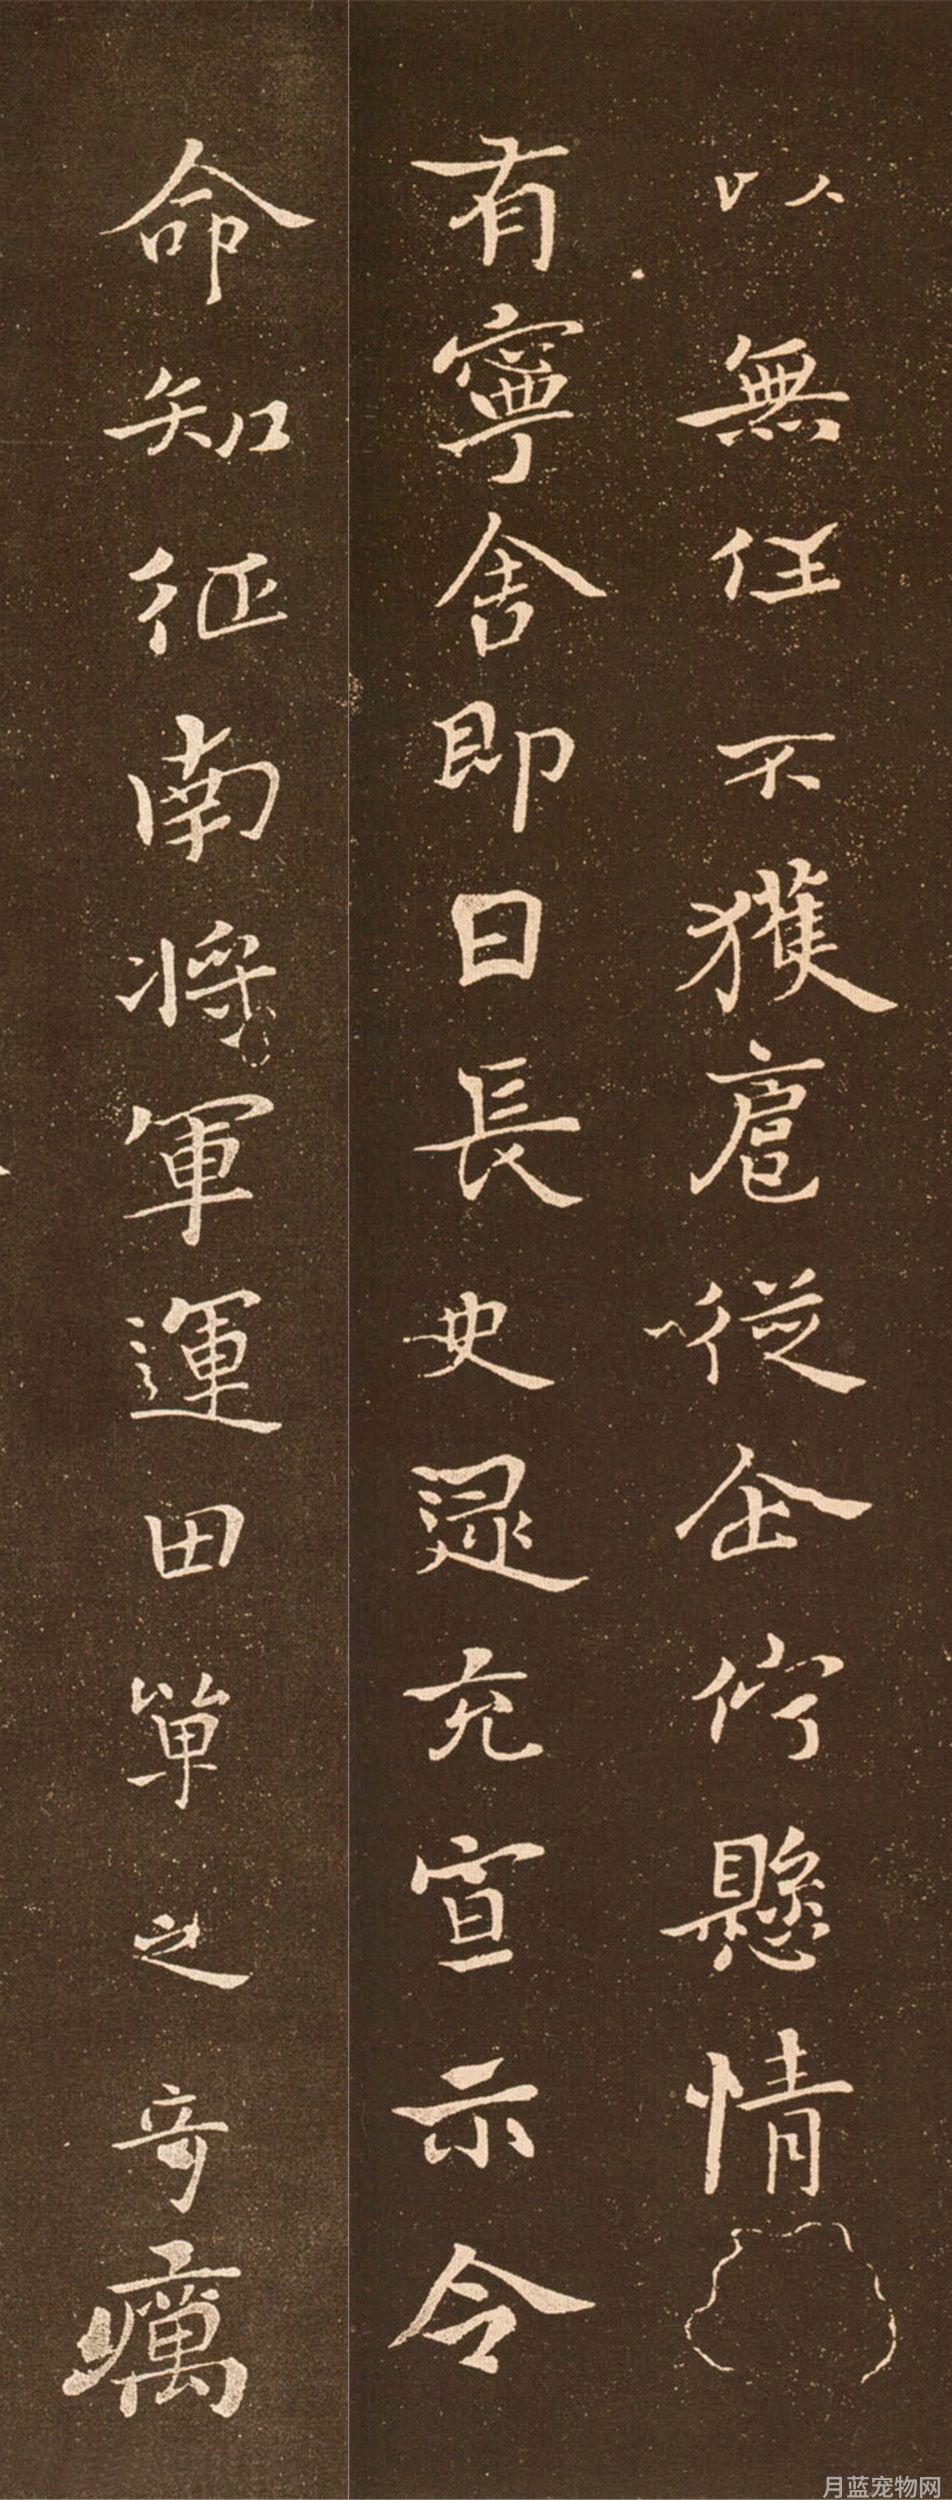 以無任不獲扈從企佇懸情
有寧舍即日長史逯充宣示令
命知征南將軍運田單之奇厲
月蓝宠物网